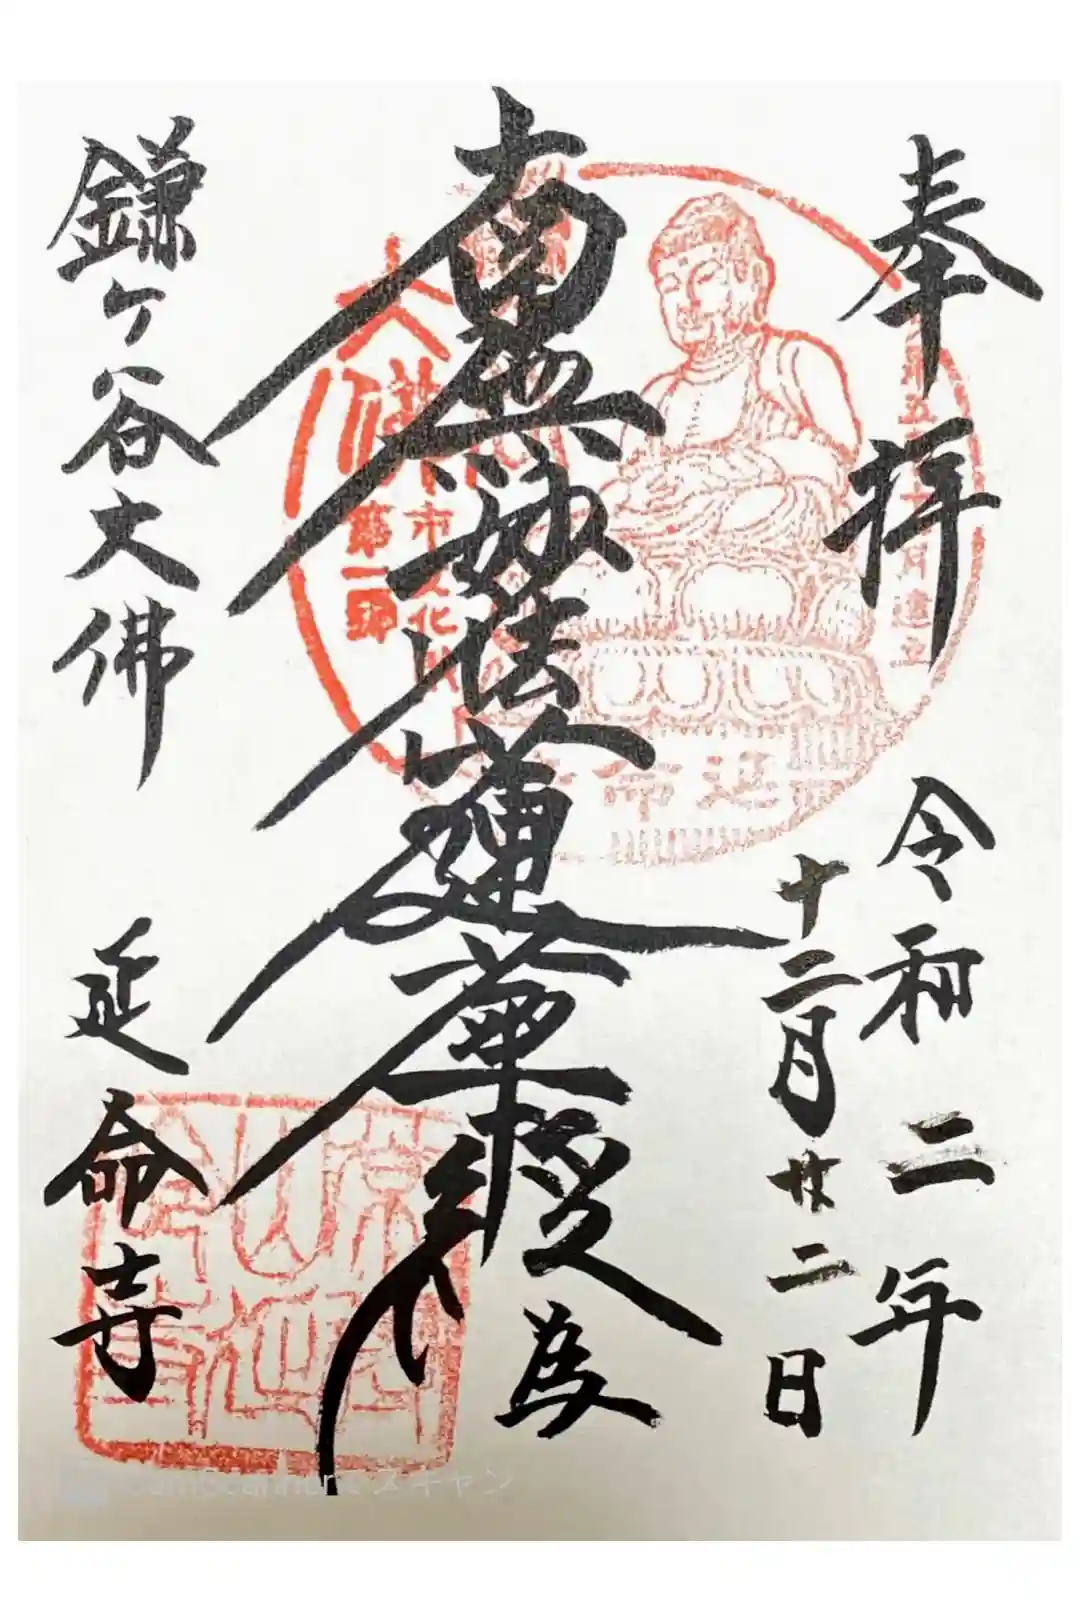 奉拝
令和二年
十二月廿二日
南無妙法蓮華経
為
鎌ヶ谷大佛
延命寺
大佛
市文化財
第一号
延命
CamScannerでスキャン